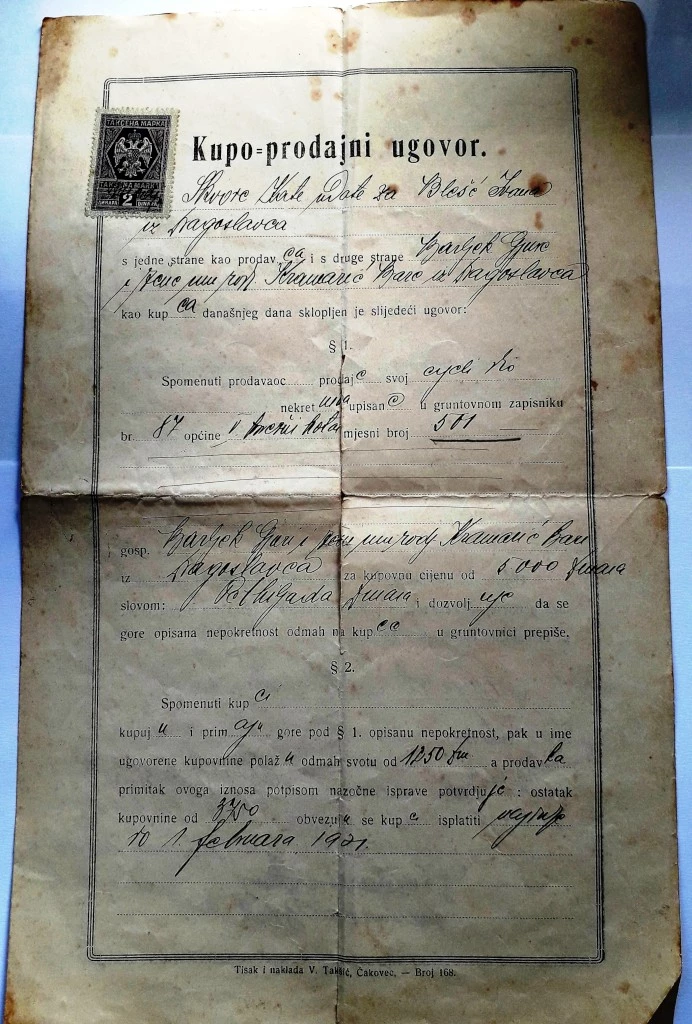 ТАКСЕНА МАРКА
2
Kupo=prodajni ugovor.
Kate udate za Blešć Ivana
iz Dragoslavca
s jedne strane kao prodav ca i s druge strane
rodj. Kramarić Bare iz Dragoslavca
kao kup ca današnjeg dana sklopljen je slijedeći ugovor:
§ 1.
Spomenuti prodavaoc prodaje svoj
nekretnina upisane u gruntovnom zapisniku
br. 87 općine V. mjesni broj 501
gosp. rodj Kramarić Bari
iz Dragoslavca za kupovnu cijenu od 5000 dinara
slovom: dinara i dozvolj uje da se
gore opisana nepokretnost odmah na kup ce u gruntovnici prepiše.
§ 2.
Spomenuti kup ci
kupuj u i prim aju gore pod § 1. opisanu nepokretnost, pak u ime
ugovorene kupovnine polaž u odmah svotu od 1250 din a prodav
primitak ovoga iznosa potpisom nazočne isprave potvrdjuje : ostatak
kupovnine od 3750 obvezuju se kup c isplatiti
do 1. februara 1921.
Tisak i naklada V. Takšić, Čakovec, — Broj 168.